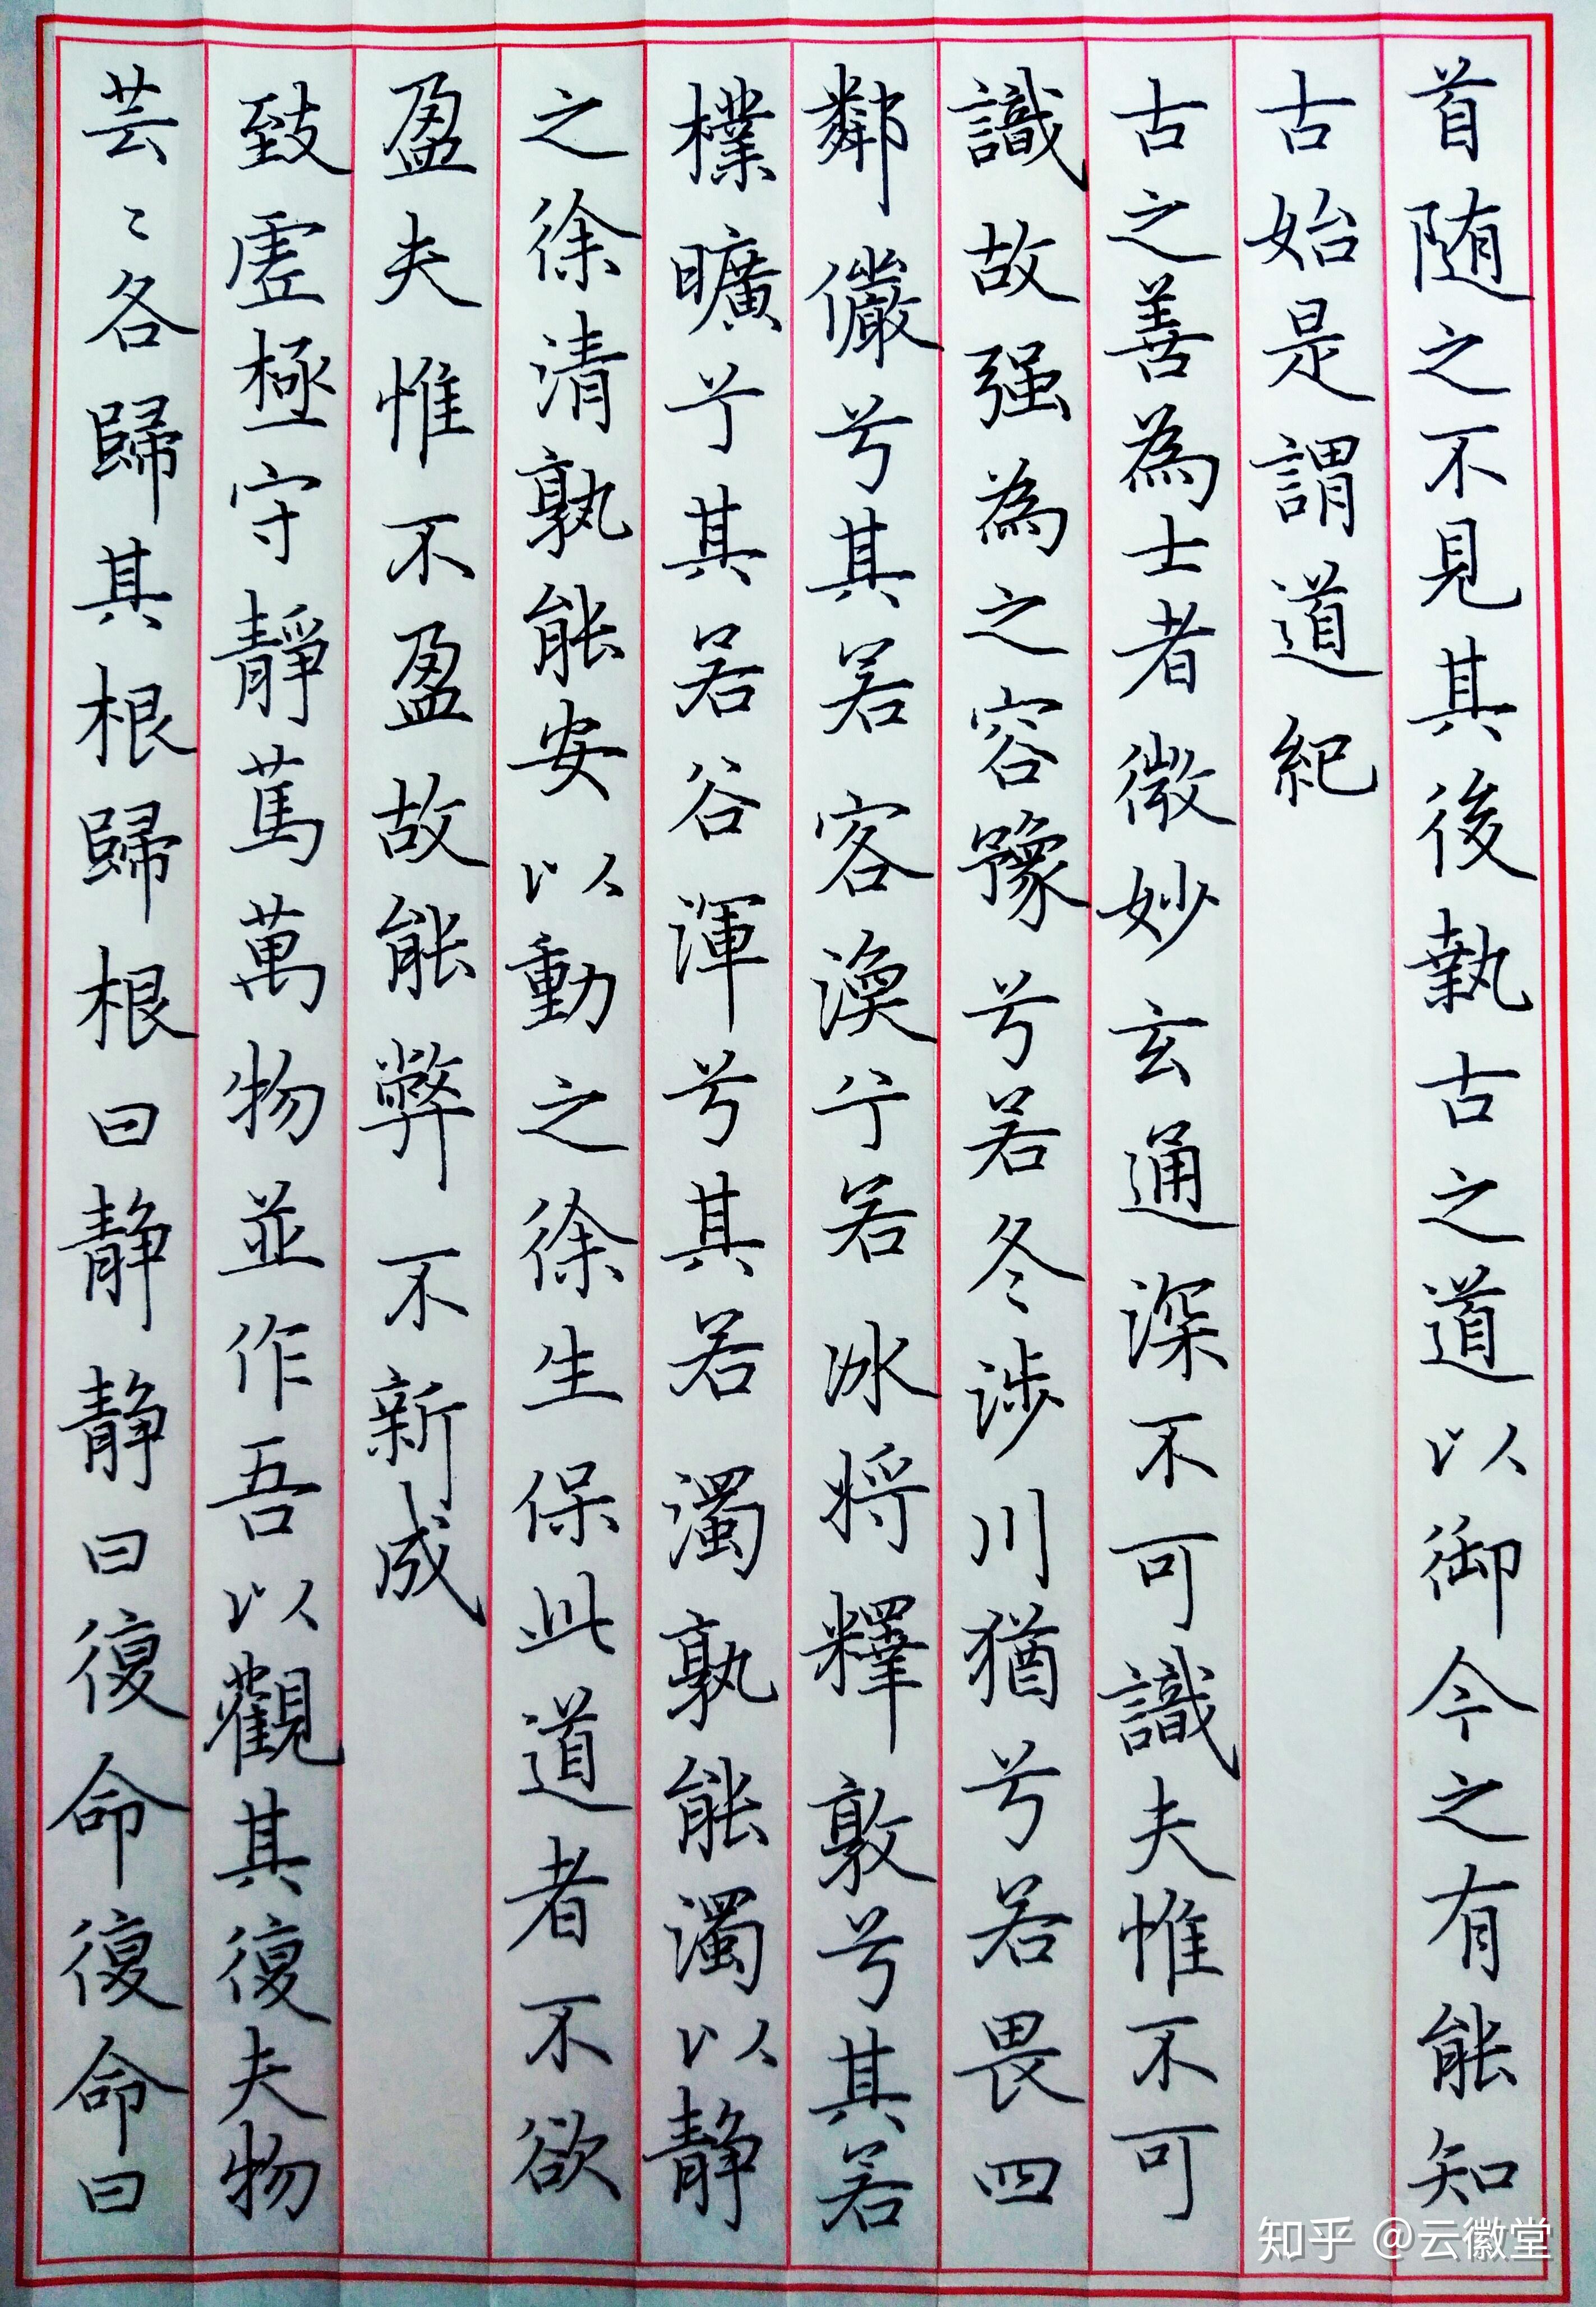 首随之不見其後執古之道以御今之有能知
古始是謂道紀
古之善為士者微妙玄通深不可識夫惟不可
識故强為之容豫兮若冬涉川猶兮若畏四
鄰儼兮其若客渙兮若冰将釋敦兮其若
樸曠兮其若谷渾兮其若濁孰能濁以静
之徐清孰能安以動之徐生保此道者不欲
盈夫惟不盈故能弊不新成
致虛極守靜篤萬物並作吾以觀其復夫物
芸〻各歸其根歸根曰静静曰復命復命曰
知乎 @云徽堂